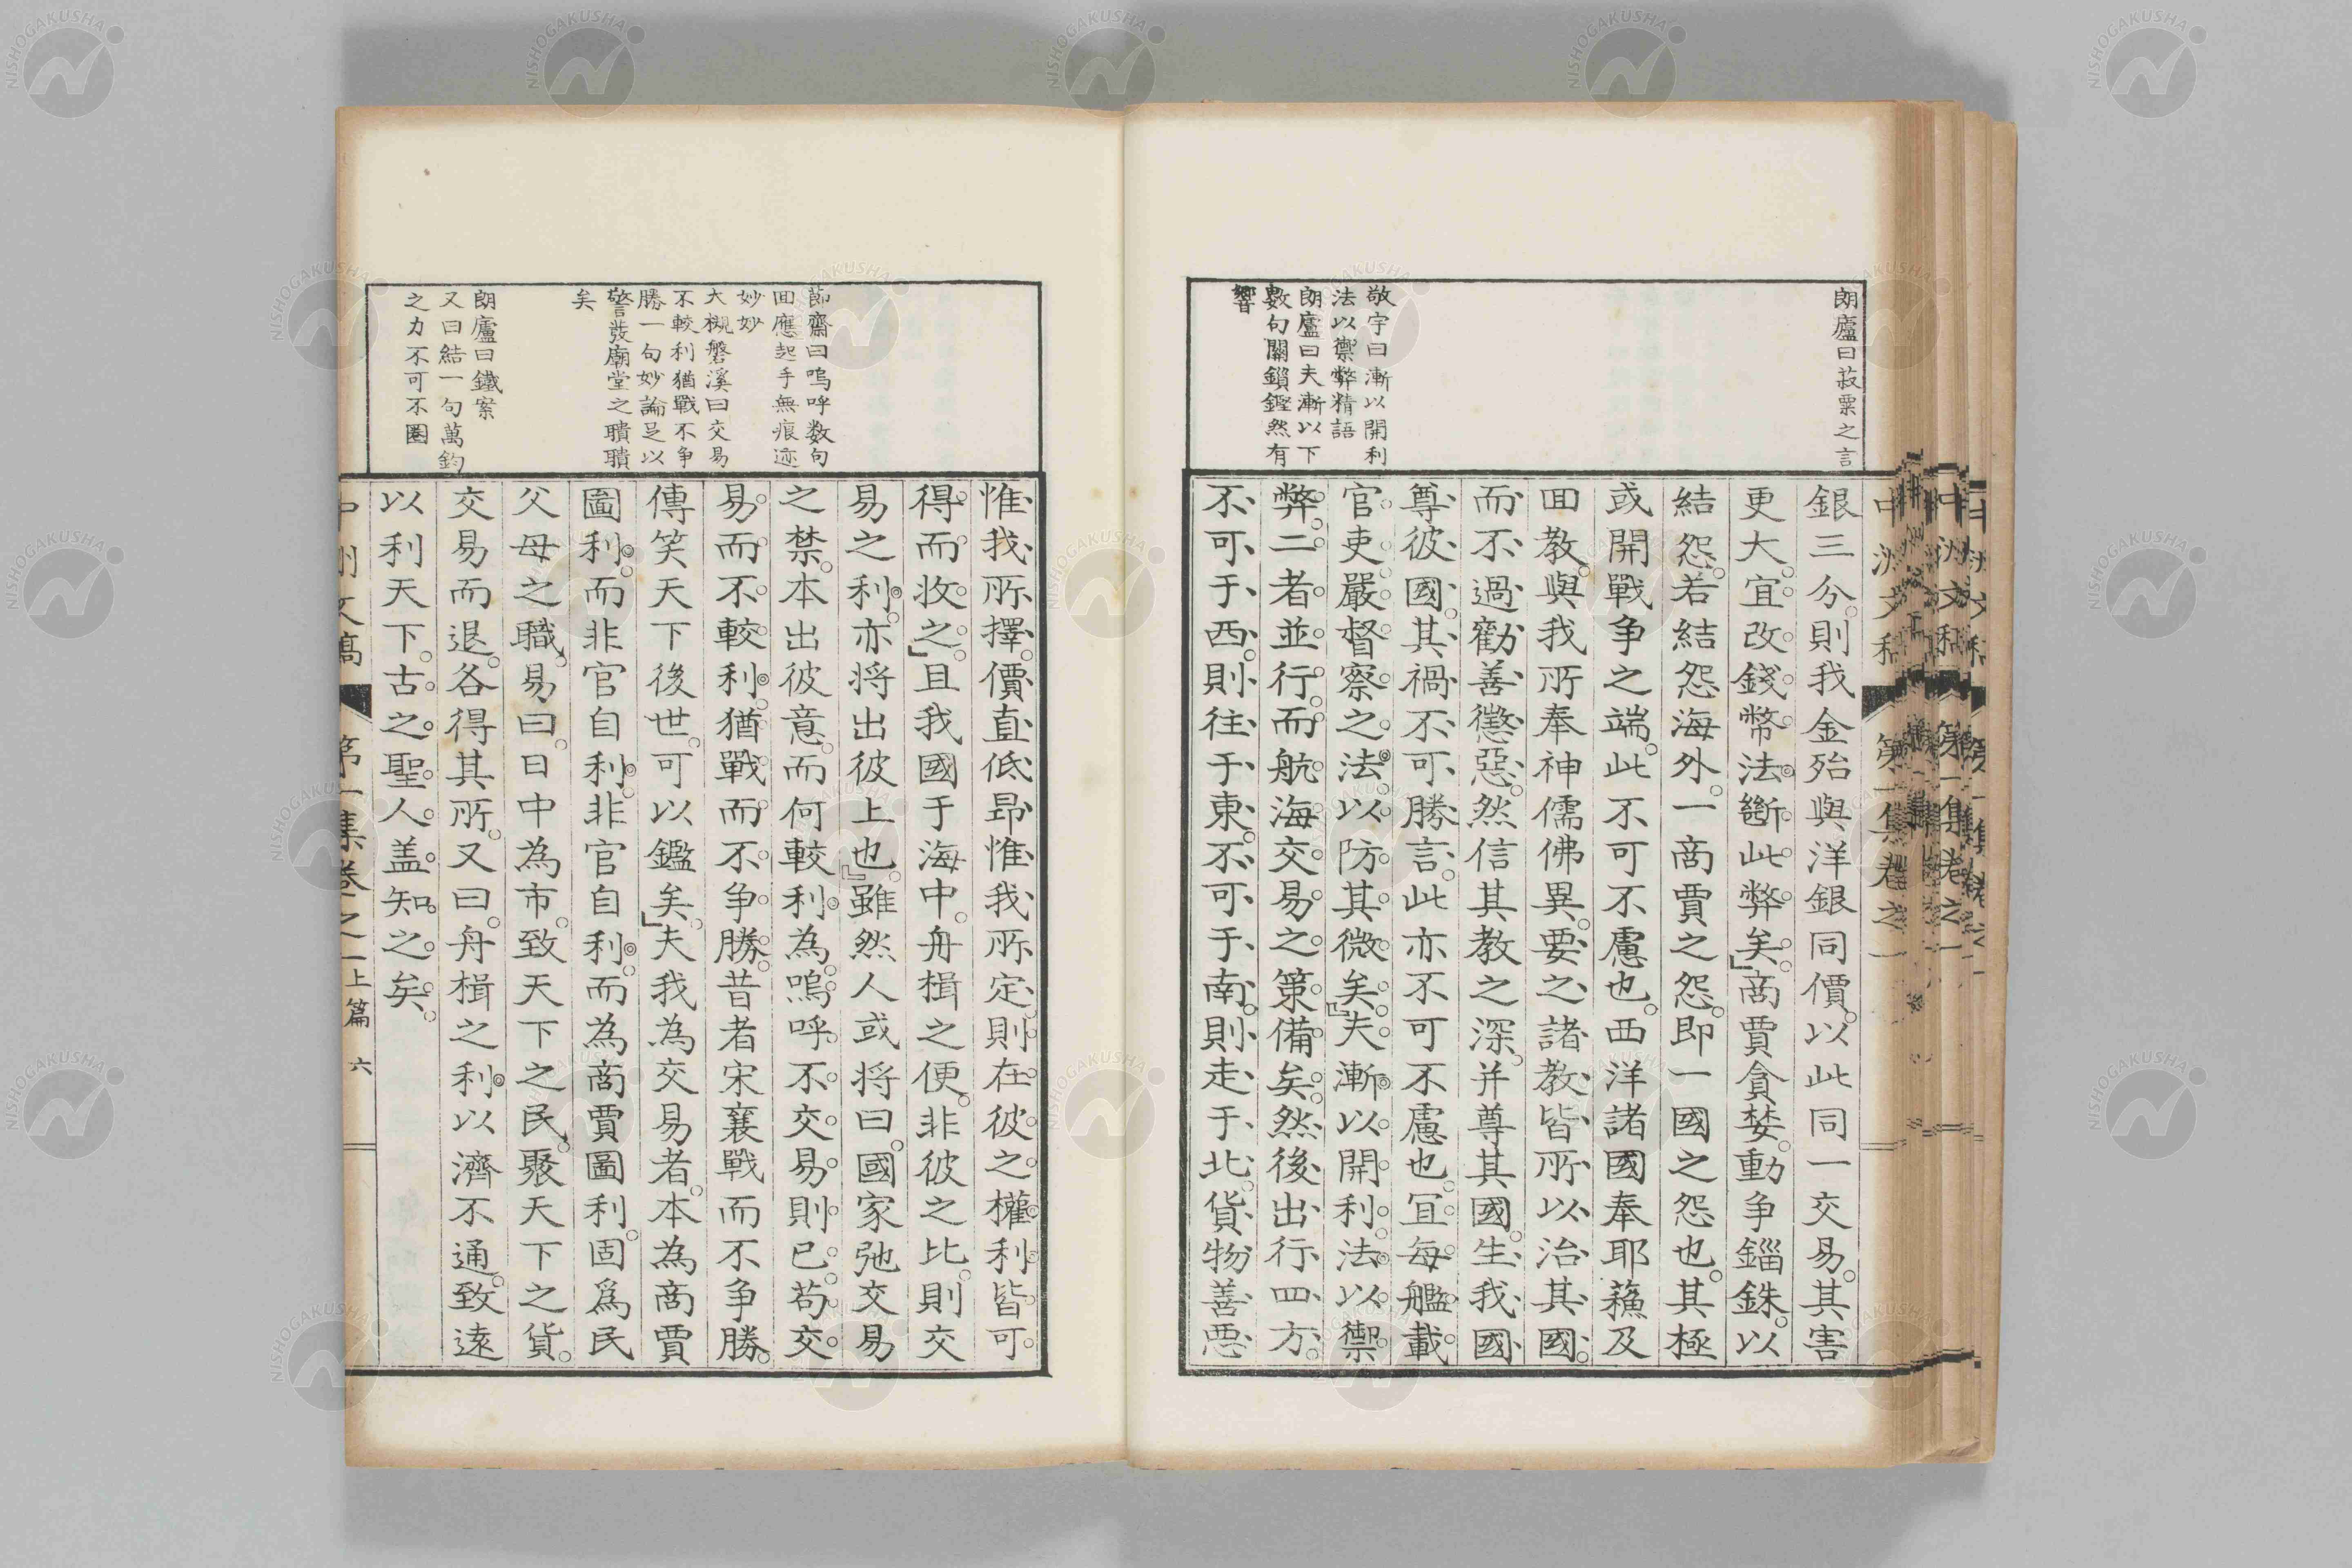 朗廬曰菽粟之言
敬宇曰漸以開利
法以禦弊精語
朗廬曰夫漸以下
數句關鎖鏗然有
響
銀三分。則我金殆與洋銀同價。以此同一交易。其害
更大。宜改錢幣法。斷此弊矣。」商賈貪婪。動争錙銖。以
結怨。若結怨海外。一商賈之怨。即一國之怨也。其極
或開戰争之端。此不可不慮也。西洋諸國奉耶蘓及
回教。與我所奉神儒佛異。要之諸教皆所以治其國。
而不過勸善懲惡。然信其教之深。并尊其國。生我國
尊彼國。其禍不可勝言。此亦不可不慮也。宜每艦載
官吏。嚴督察之法。以防其微矣。」夫漸以開利。法以禦
弊。二者並行。而航海交易之策備矣。然後出行四方。
不可于西。則往于東。不可于南。則走于北。貨物善惡
節齋曰嗚呼数句
回應起手無痕迹
妙妙
大槻磐溪曰交易
不較利猶戰不争
勝一句妙論足以
警發廟堂之聵聵
矣
朗廬曰鐵案
又曰結一句萬鈞
之力不可不圈
惟我所擇。價直低昻惟我所定。則在彼之權利皆可
得而收之。」且我國于海中。舟楫之便。非彼之比。則交
易之利。亦将出彼上也。」雖然人或将曰。國家弛交易
之禁。本出彼意。而何較利為。嗚呼。不交易則已。苟交
易而不較利。猶戰而不争勝。昔者宋襄戰而不争勝。
傳笑天下後世。可以鑑矣。」夫我為交易者。本為商賈
圖利。而非官自利。非官自利。而為商賈圖利。固爲民
父母之職。易曰。日中為市。致天下之民。聚天下之貨。
交易而退。各得其所。又曰。舟楫之利。以濟不通。致遠
以利天下。古之聖人。盖知之矣。
中洲文稿　第一集卷之一　上篇　六